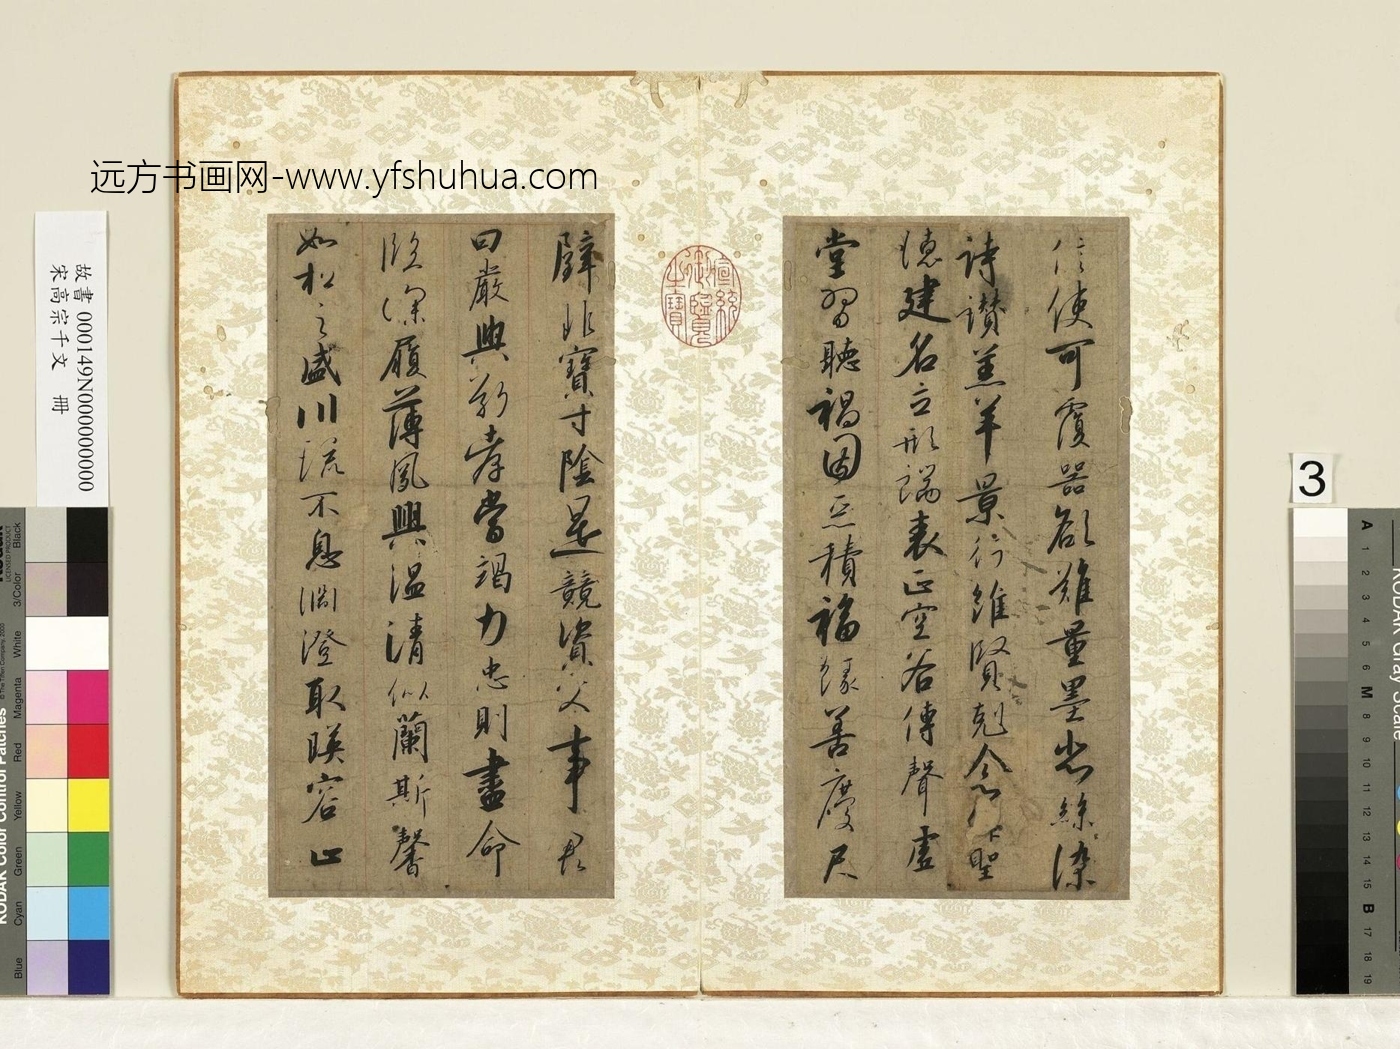 远方书画网-www.yfshuhua.com
信使可覆器欲難量墨悲絲染
詩讚羔羊景行維賢剋念作聖
德建名立形端表正空谷傳聲虛
堂習聽禍因惡積福緣善慶尺
宣統御覽之寶
璧非寶寸陰是競資父事君
曰嚴與敬孝當竭力忠則盡命
臨深履薄夙興溫清似蘭斯馨
如松之盛川流不息淵澄取暎容止
故書 000149N000000000
宋高宗千文 冊
3
KODAK Color Control Patches
Blue Cyan Green Yellow Red Magenta White 3/Color Black
KODAK Gray Scale
A 1 2 3 4 5 6 M 8 9 10 11 12 13 14 15 B 17 18 19